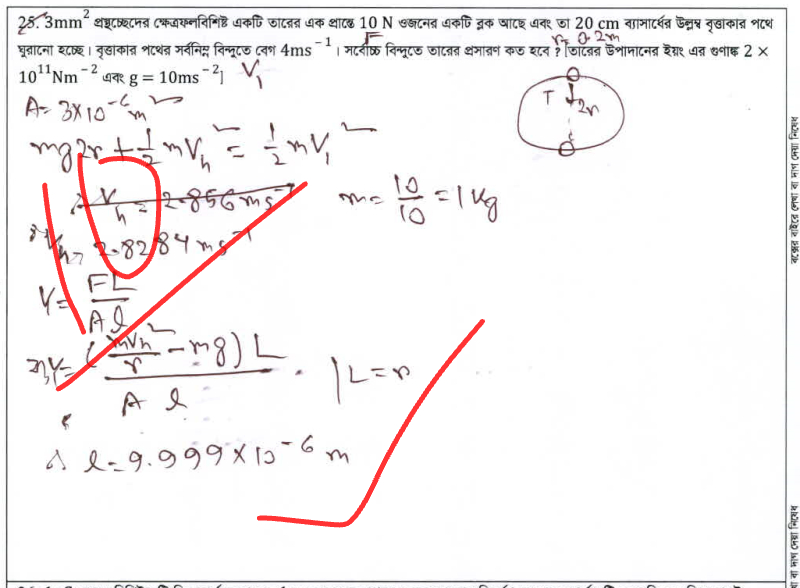 25. 3mm² প্রস্থচ্ছেদের ক্ষেত্রফলবিশিষ্ট একটি তারের এক প্রান্তে 10 N ওজনের একটি ব্লক আছে এবং তা 20 cm ব্যাসার্ধের উল্লম্ব বৃত্তাকার পথে
F r = 0.2m
ঘুরানো হচ্ছে। বৃত্তাকার পথের সর্বনিম্ন বিন্দুতে বেগ 4ms⁻¹। সর্বোচ্চ বিন্দুতে তারের প্রসারণ কত হবে? [তারের উপাদানের ইয়ং এর গুণাঙ্ক 2 ×
10¹¹Nm⁻² এবং g = 10ms⁻²]
V₁
A = 3×10⁻⁶ m²
T 2r
mg2r + ½ mVₕ² = ½ mV₁²
∴ Vₕ = 2.856 ms⁻¹
m = 10/10 = 1 kg
Vₕ = 2.8284 ms⁻¹
Y = FL/Al
Y = (mVₕ²/r − mg) L / A l
| L = r
∴ l = 9.999×10⁻⁶ m
বক্সের বাইরে লেখা বা দাগ দেয়া নিষেধ
বা দাগ দেয়া নিষেধ